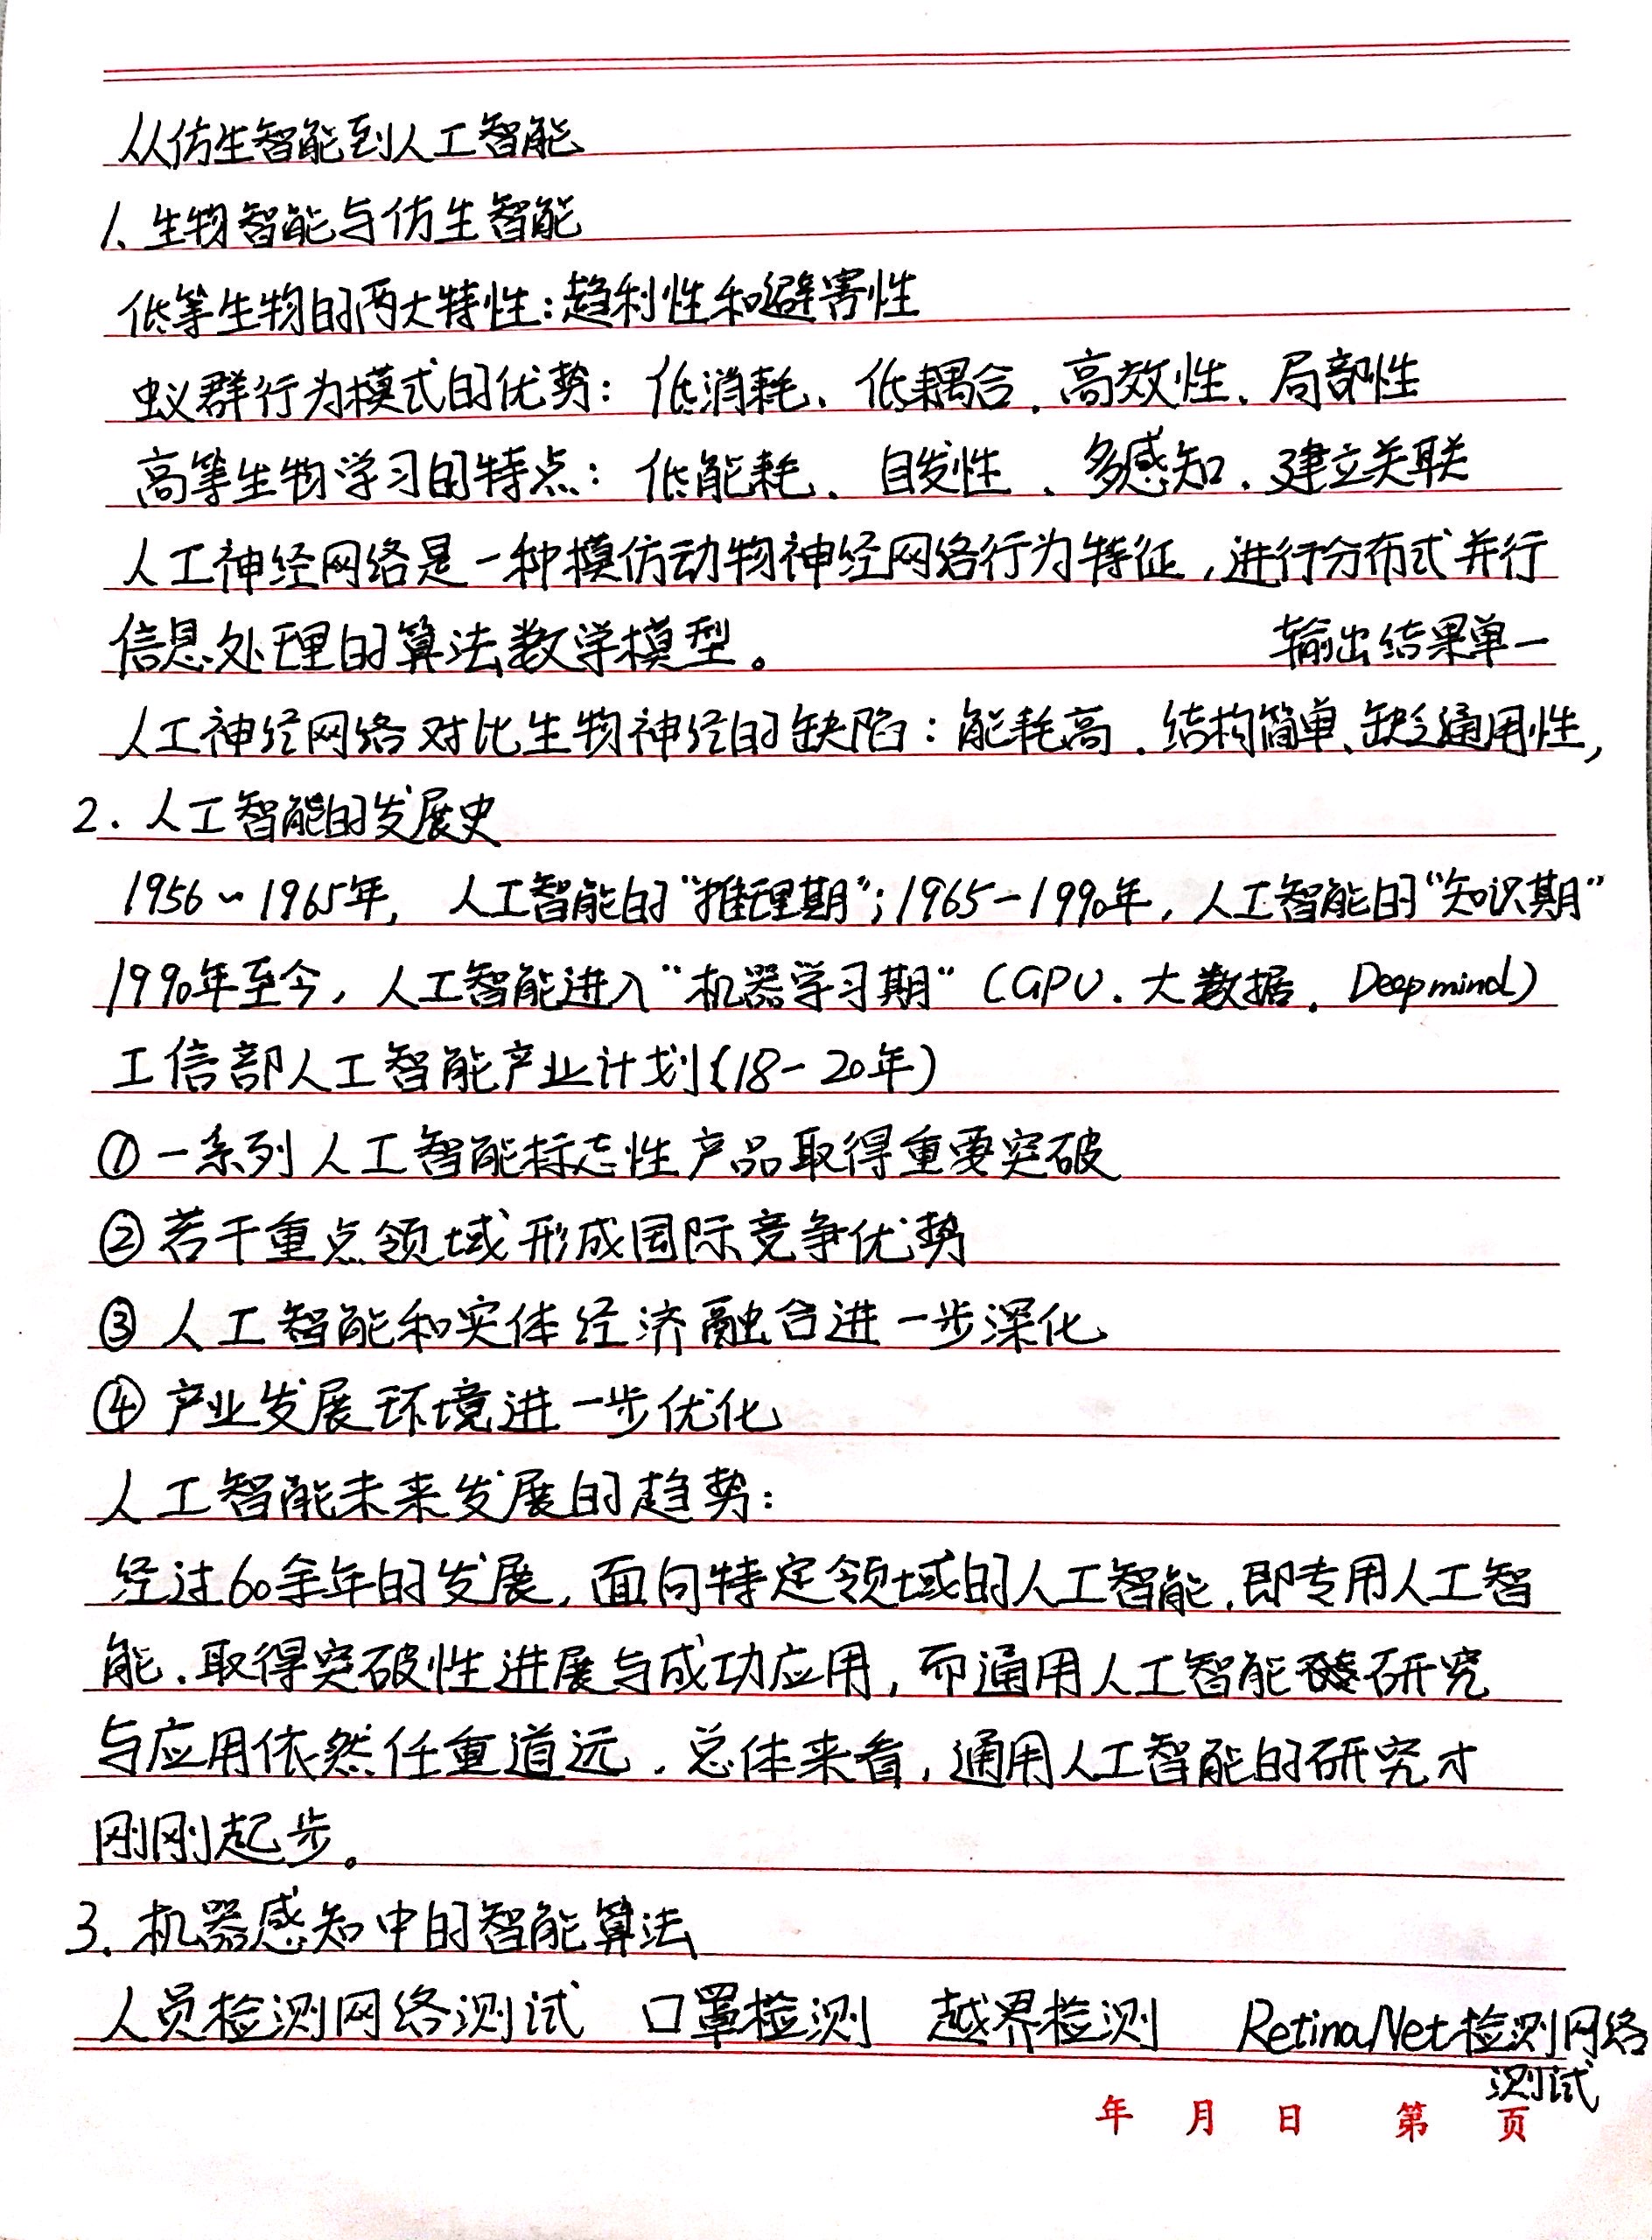 从仿生智能到人工智能
1、生物智能与仿生智能
低等生物的两大特性：趋利性和避害性
蚁群行为模式的优势：低消耗、低耦合、高效性、局部性
高等生物学习的特点：低能耗、自发性、多感知、建立关联
人工神经网络是一种模仿动物神经网络行为特征，进行分布式并行
信息处理的算法数学模型。
人工神经网络对比生物神经的缺陷：能耗高、结构简单、缺乏通用性，
输出结果单一
2. 人工智能的发展史
1956~1965年，人工智能的"推理期"；1965-1990年，人工智能的"知识期"
1990年至今，人工智能进入"机器学习期"（GPU、大数据、Deepmind）
工信部人工智能产业计划（18-20年）
①一系列人工智能标志性产品取得重要突破
②若干重点领域形成国际竞争优势
③人工智能和实体经济融合进一步深化
④产业发展环境进一步优化
人工智能未来发展的趋势：
经过60余年的发展，面向特定领域的人工智能，即专用人工智
能，取得突破性进展与成功应用，而通用人工智能研究
与应用依然任重道远，总体来看，通用人工智能的研究才
刚刚起步。
3. 机器感知中的智能算法
人员检测网络测试 口罩检测 越界检测 RetinaNet检测网络
测试
年 月 日 第 页